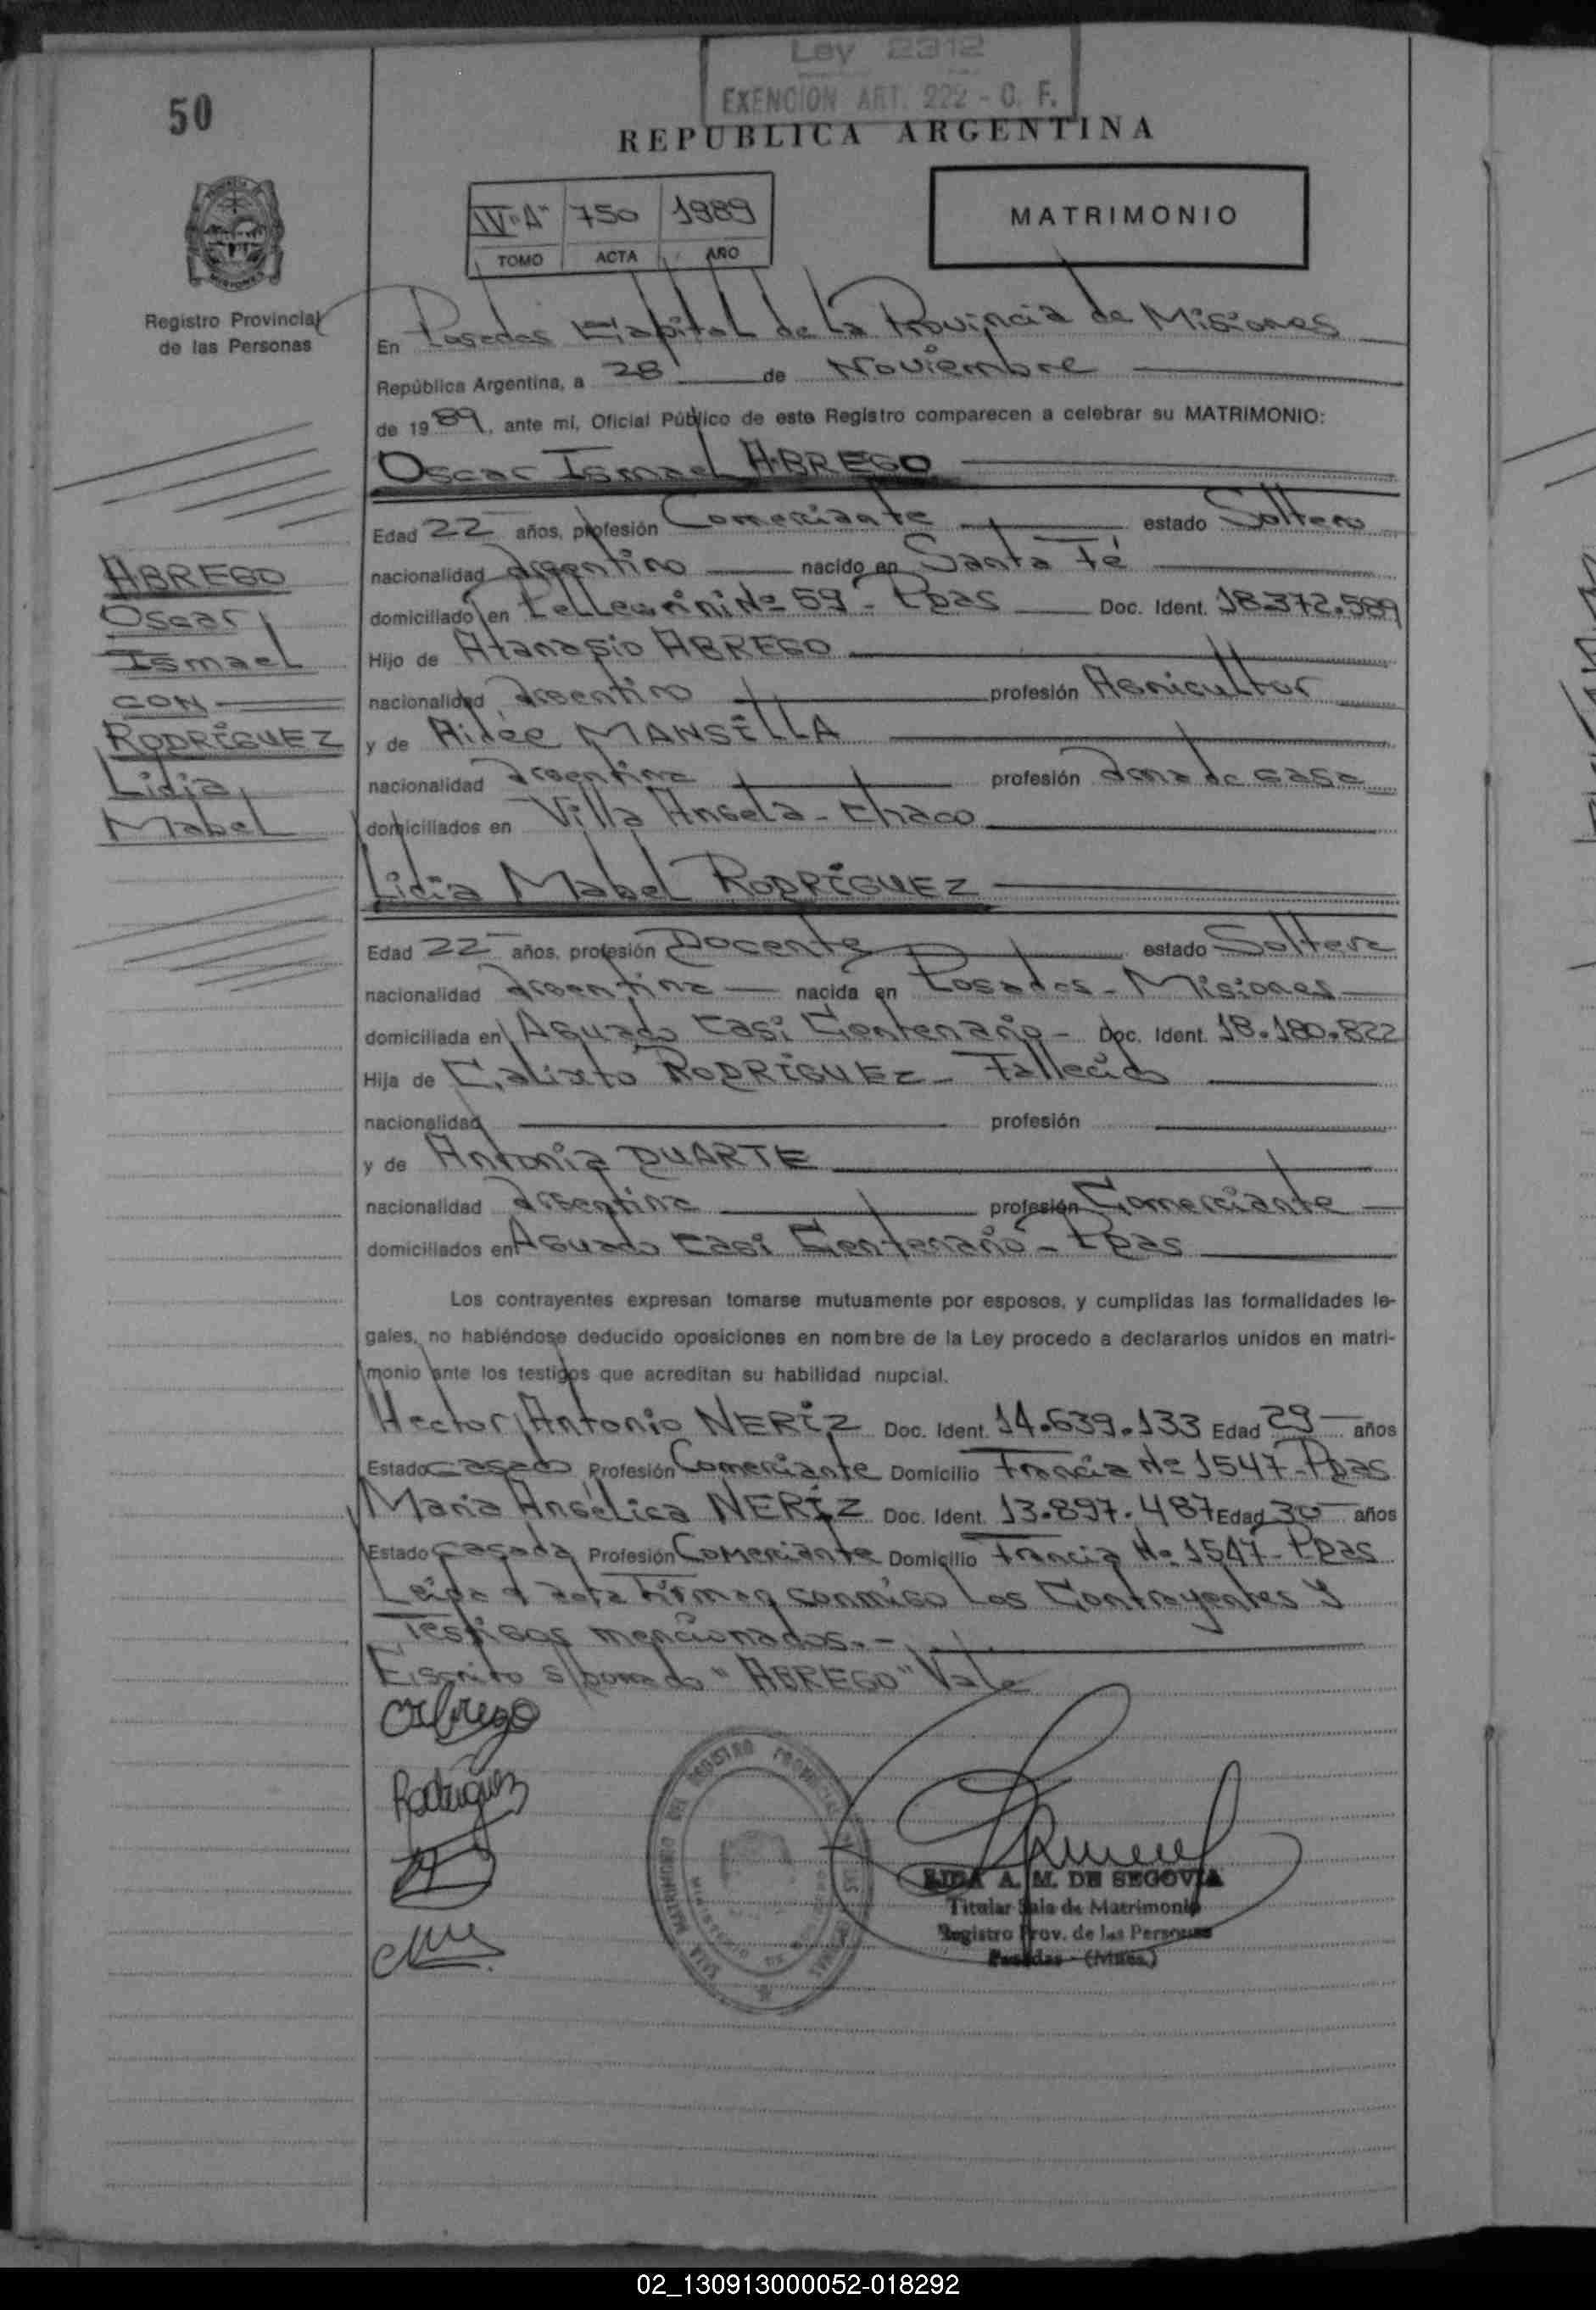 Ley 2312
EXENCION ART. 222 - C. F.
50
REPUBLICA ARGENTINA
IV "A" 750 1989
TOMO ACTA AÑO
MATRIMONIO
Registro Provincial
de las Personas
En Posadas Capital de La Provincia de Misiones
República Argentina, a 28 de Noviembre
de 1989, ante mí, Oficial Público de este Registro comparecen a celebrar su MATRIMONIO:
Oscar Ismael ABREGO
Edad 22 años, profesión Comerciante estado Soltero
nacionalidad argentino nacido en Santa Fé
domiciliado en Pellegrini Nº 59 - Pdas Doc. Ident. 18.372.589
Hijo de Atanasio ABREGO
nacionalidad argentino profesión Agricultor
y de Aidée MANSILLA
nacionalidad argentina profesión ama de casa
domiciliados en Villa Angela - Chaco
ABREGO
Oscar
Ismael
CON
RODRÍGUEZ
Lidia
Mabel
Lidia Mabel RODRÍGUEZ
Edad 22 años, profesión Docente estado Soltera
nacionalidad argentina nacida en Posadas - Misiones
domiciliada en Aguado casi Centenario - Doc. Ident. 18.180.822
Hija de Calixto RODRÍGUEZ - Fallecido
nacionalidad profesión
y de Antonia DUARTE
nacionalidad argentina profesión Comerciante
domiciliados en Aguado casi Centenario - Pdas
Los contrayentes expresan tomarse mutuamente por esposos, y cumplidas las formalidades le-
gales, no habiéndose deducido oposiciones en nombre de la Ley procedo a declararlos unidos en matri-
monio ante los testigos que acreditan su habilidad nupcial.
Hector Antonio NERIZ Doc. Ident. 14.639.133 Edad 29 años
Estado casado Profesión Comerciante Domicilio Francia Nº 1547 - Pdas
Maria Angélica NERIZ Doc. Ident. 13.897.487 Edad 30 años
Estado casada Profesión Comerciante Domicilio Francia Nº 1547 - Pdas
Leída el acta firman conmigo los Contrayentes y
Testigos mencionados.-
Escrito s/borrado "ABREGO" Vale
OAbrego
Rodriguez
REGISTRO PROVINCIAL DE LAS PERSONAS
SALA MATRIMONIO
MINISTERIO DE
A. M. DE SEGOVIA
Titular Sala de Matrimonio
Registro Prov. de las Personas
Posadas - (Mnes.)
02_130913000052-018292